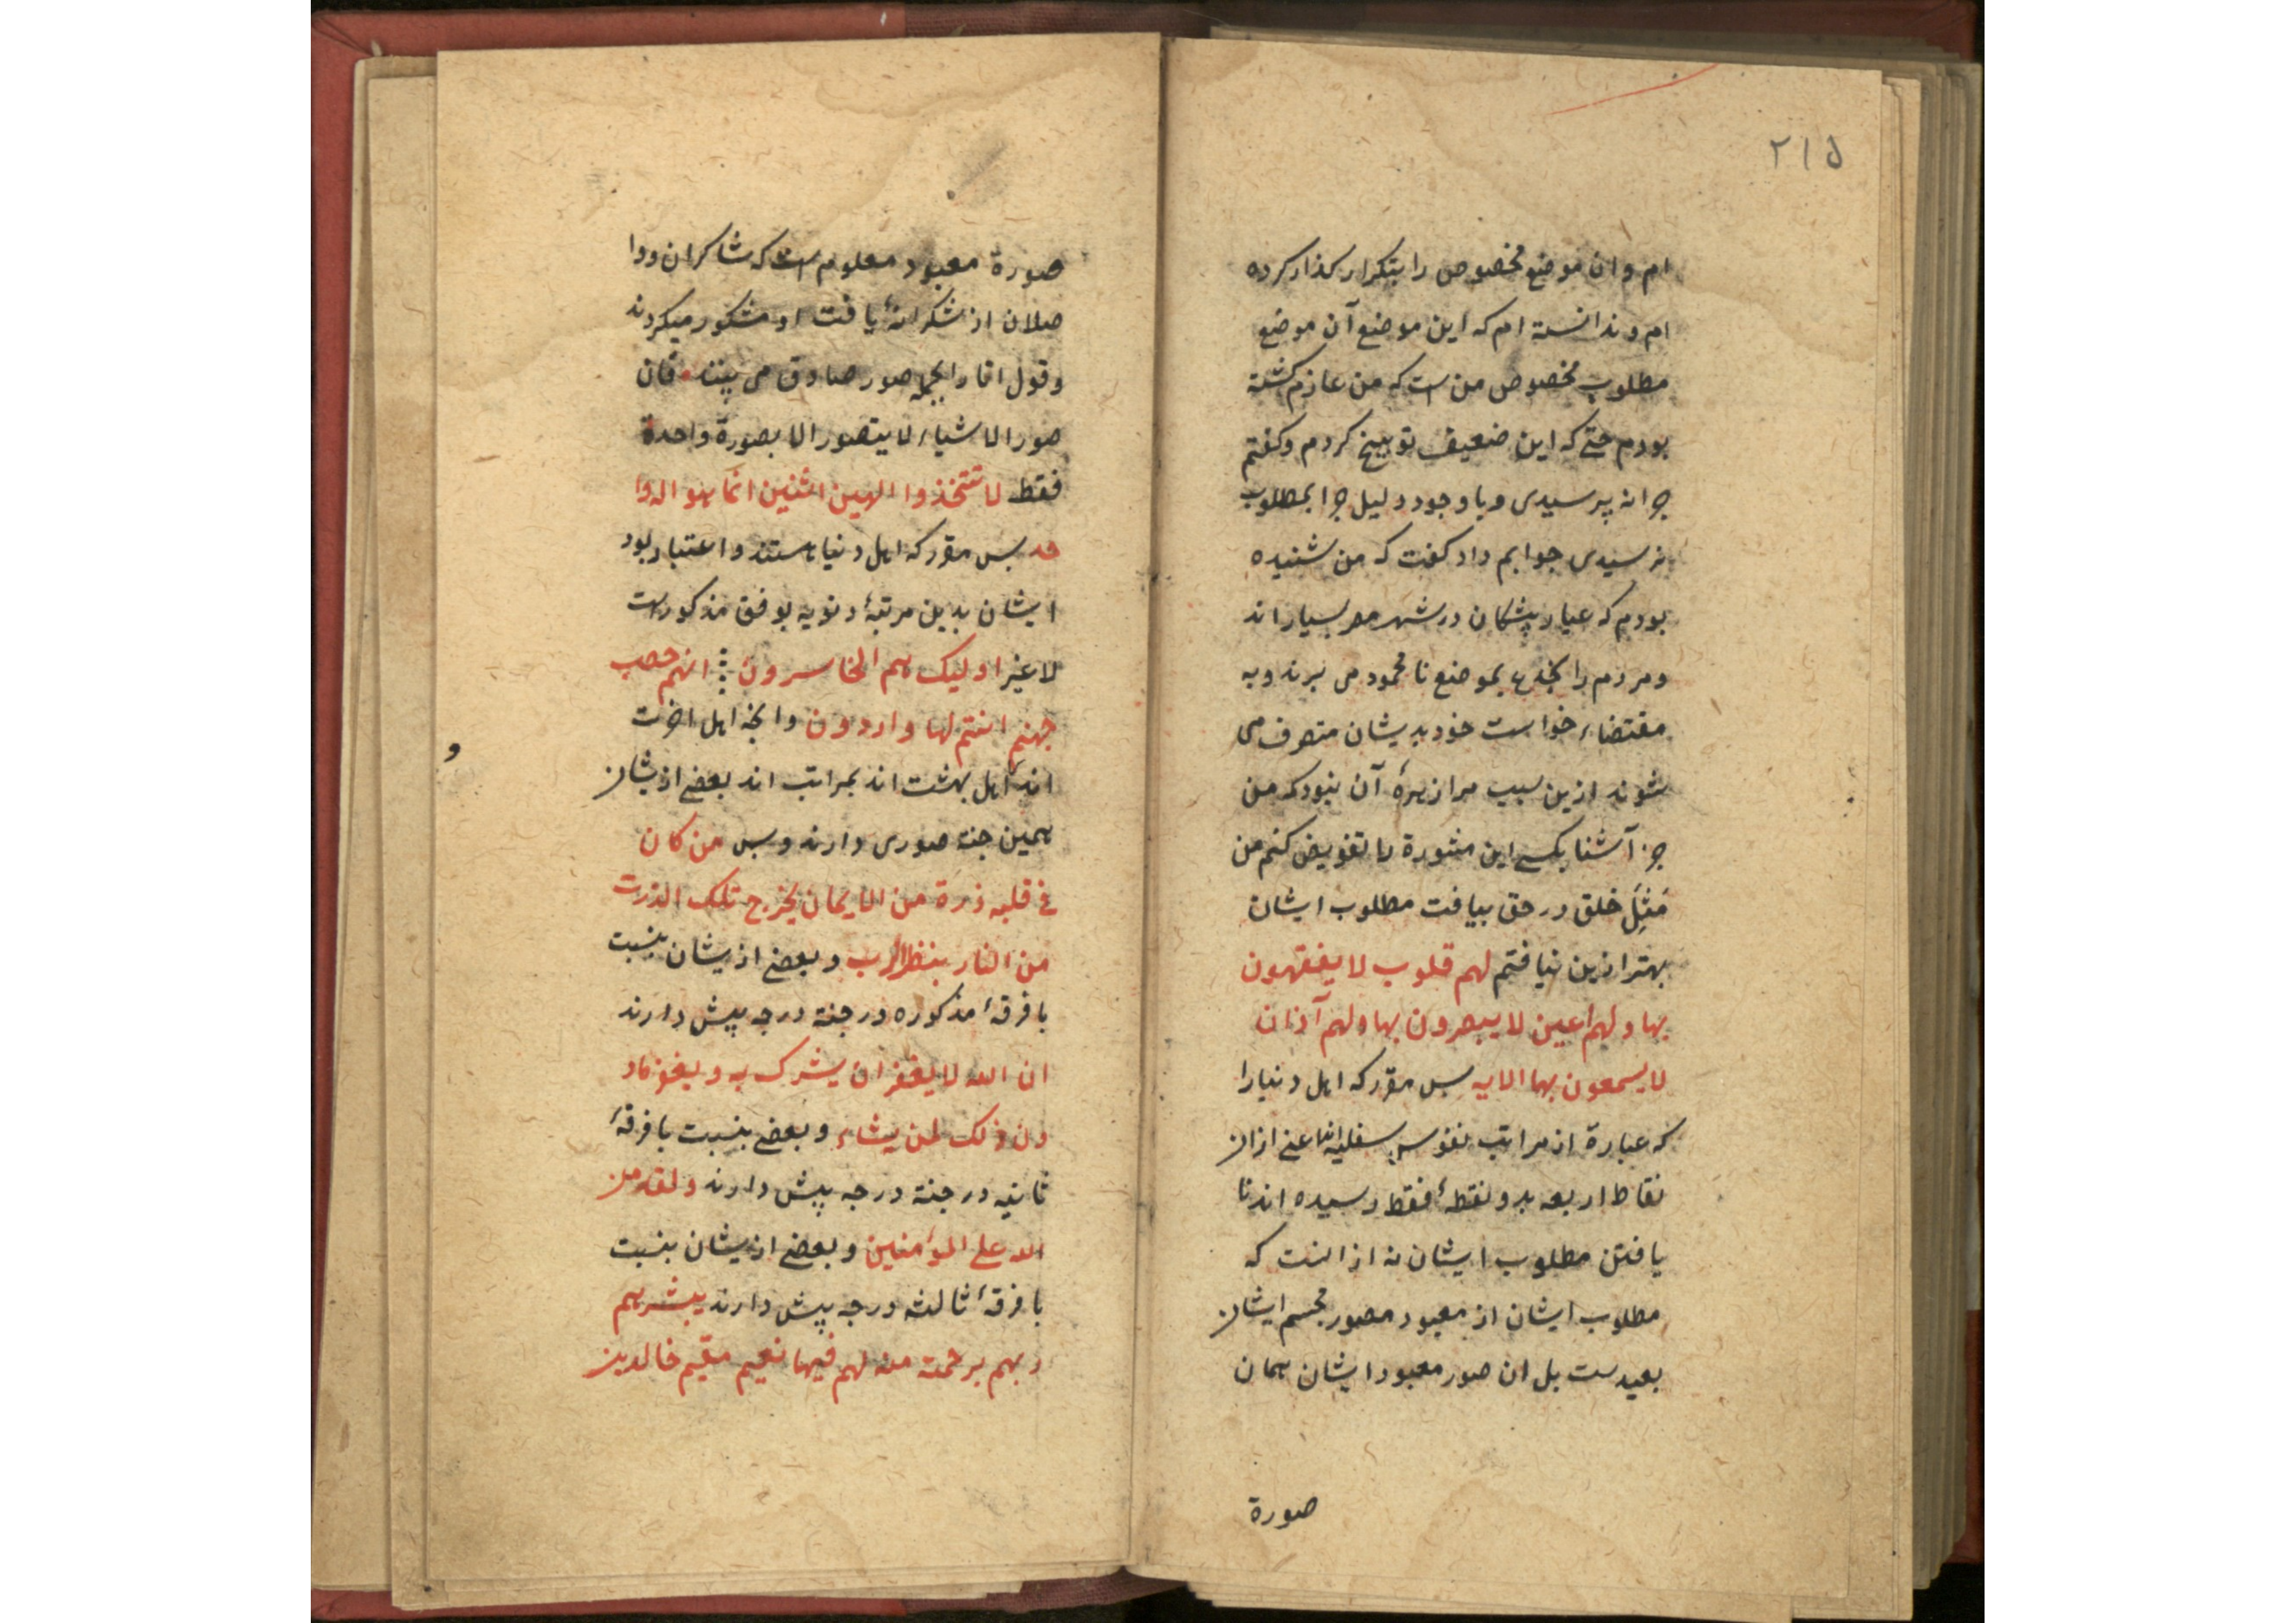 ۲۱۵
ام و ان موضع مخصوص را بتکرار کذار کرده
ام و ندانسته ام که این موضع آن موضع
مطلوب مخصوص من است که من عازم کشته
بودم حتے که این ضعیف توبیخ کردم و کفتم
چرا نه پرسیدی و با وجود دلیل چرا بمطلوب
نرسیدی جوابم داد کفت که من شنیده
بودم که عیار پیشکان در شهر مصر بسیار اند
و مردم را بخدعه بموضع نا محمود می برند و به
مقتضاء خواست خود بدیشان متصرف می
شوند ازین سبب مرا زهرهٔ آن نبود که من
جز آشنا بکسے این مشورة را تفویض کنم من
مَثِلَ خلق در حق بیافت مطلوب ایشان
بهتر ازین نیافتم لهم قلوب لا یفقهون
بها و لهم اعین لا یبصرون بها و لهم آذان
لا یسمعون بها الایه بس مقرر که اهل دنیا را
که عبارة از مراتب نفوس سفلیه اند اعنے از ان
نقاط اربعه بدو نقطهٔ فقط رسیده اند نا
یافتن مطلوب ایشان نه از انست که
مطلوب ایشان از معبود مصور مجسم ایشان
بعیدست بل ان صور معبود ایشان همان
صورة
صورة معبود معلوم است که شاکران و وا
صلان از شکرانهٔ یافت او مشکور میکردند
و قول انا را بجمله صور صادق می بینند فان
صور الاشیاء لا یتصور الا بصورة واحدة
فقط لا تتخذوا الهین اثنین انما هو اله وا
حد بس مقرر که اهل دنیا هستند و اعتبار بود
ایشان بدین مرتبهٔ دنویه بوفق مذکور است
لا غیر اولیک هم الخاسرون انهم حصب
جهنم انتم لها واردون و انچه اهل اخرت
اند اهل بهشت اند بمراتب اند بعضے ازیشان
و
همین جنة صوری دارند و بس من کان
فے قلبه ذرة من الایمان یخرج تلک الذرت
من النار بنظر الرب و بعضے ازیشان بنسبت
با فرقهٔ مذکوره در جنة درجه بیش دارند
ان الله لا یغفر ان یشرک به و یغفر ما د
ون ذلک لمن یشاء و بعضے بنسبت با فرقهٔ
ثانیه در جنة درجه بیش دارند و لقد من
الله علے المؤمنین و بعضے ازیشان بنسبت
با فرقهٔ ثالثه درجه بیش دارند یبشرهم
ربهم برحمة منه لهم فیها نعیم مقیم خالدین